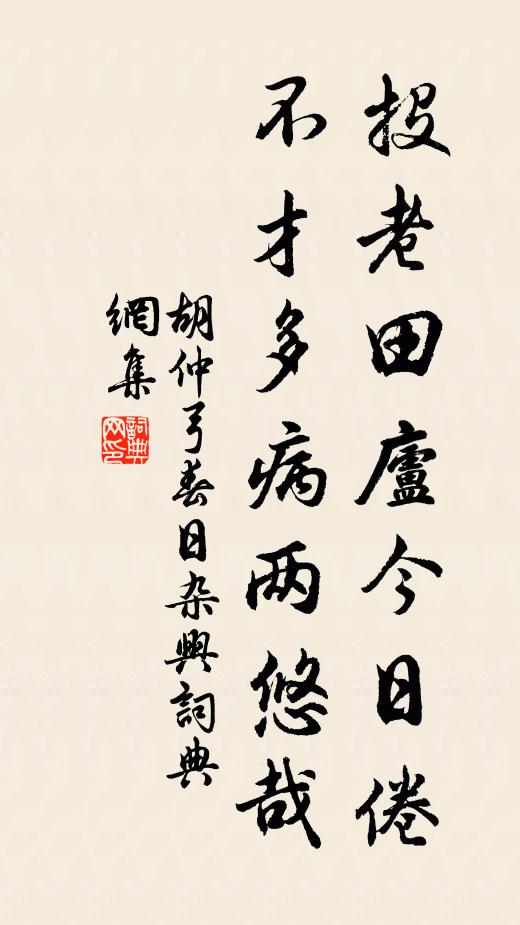 投老田廬今日倦
不才多病两悠哉
胡仲弓春日杂興詞典
網集
詞典网印